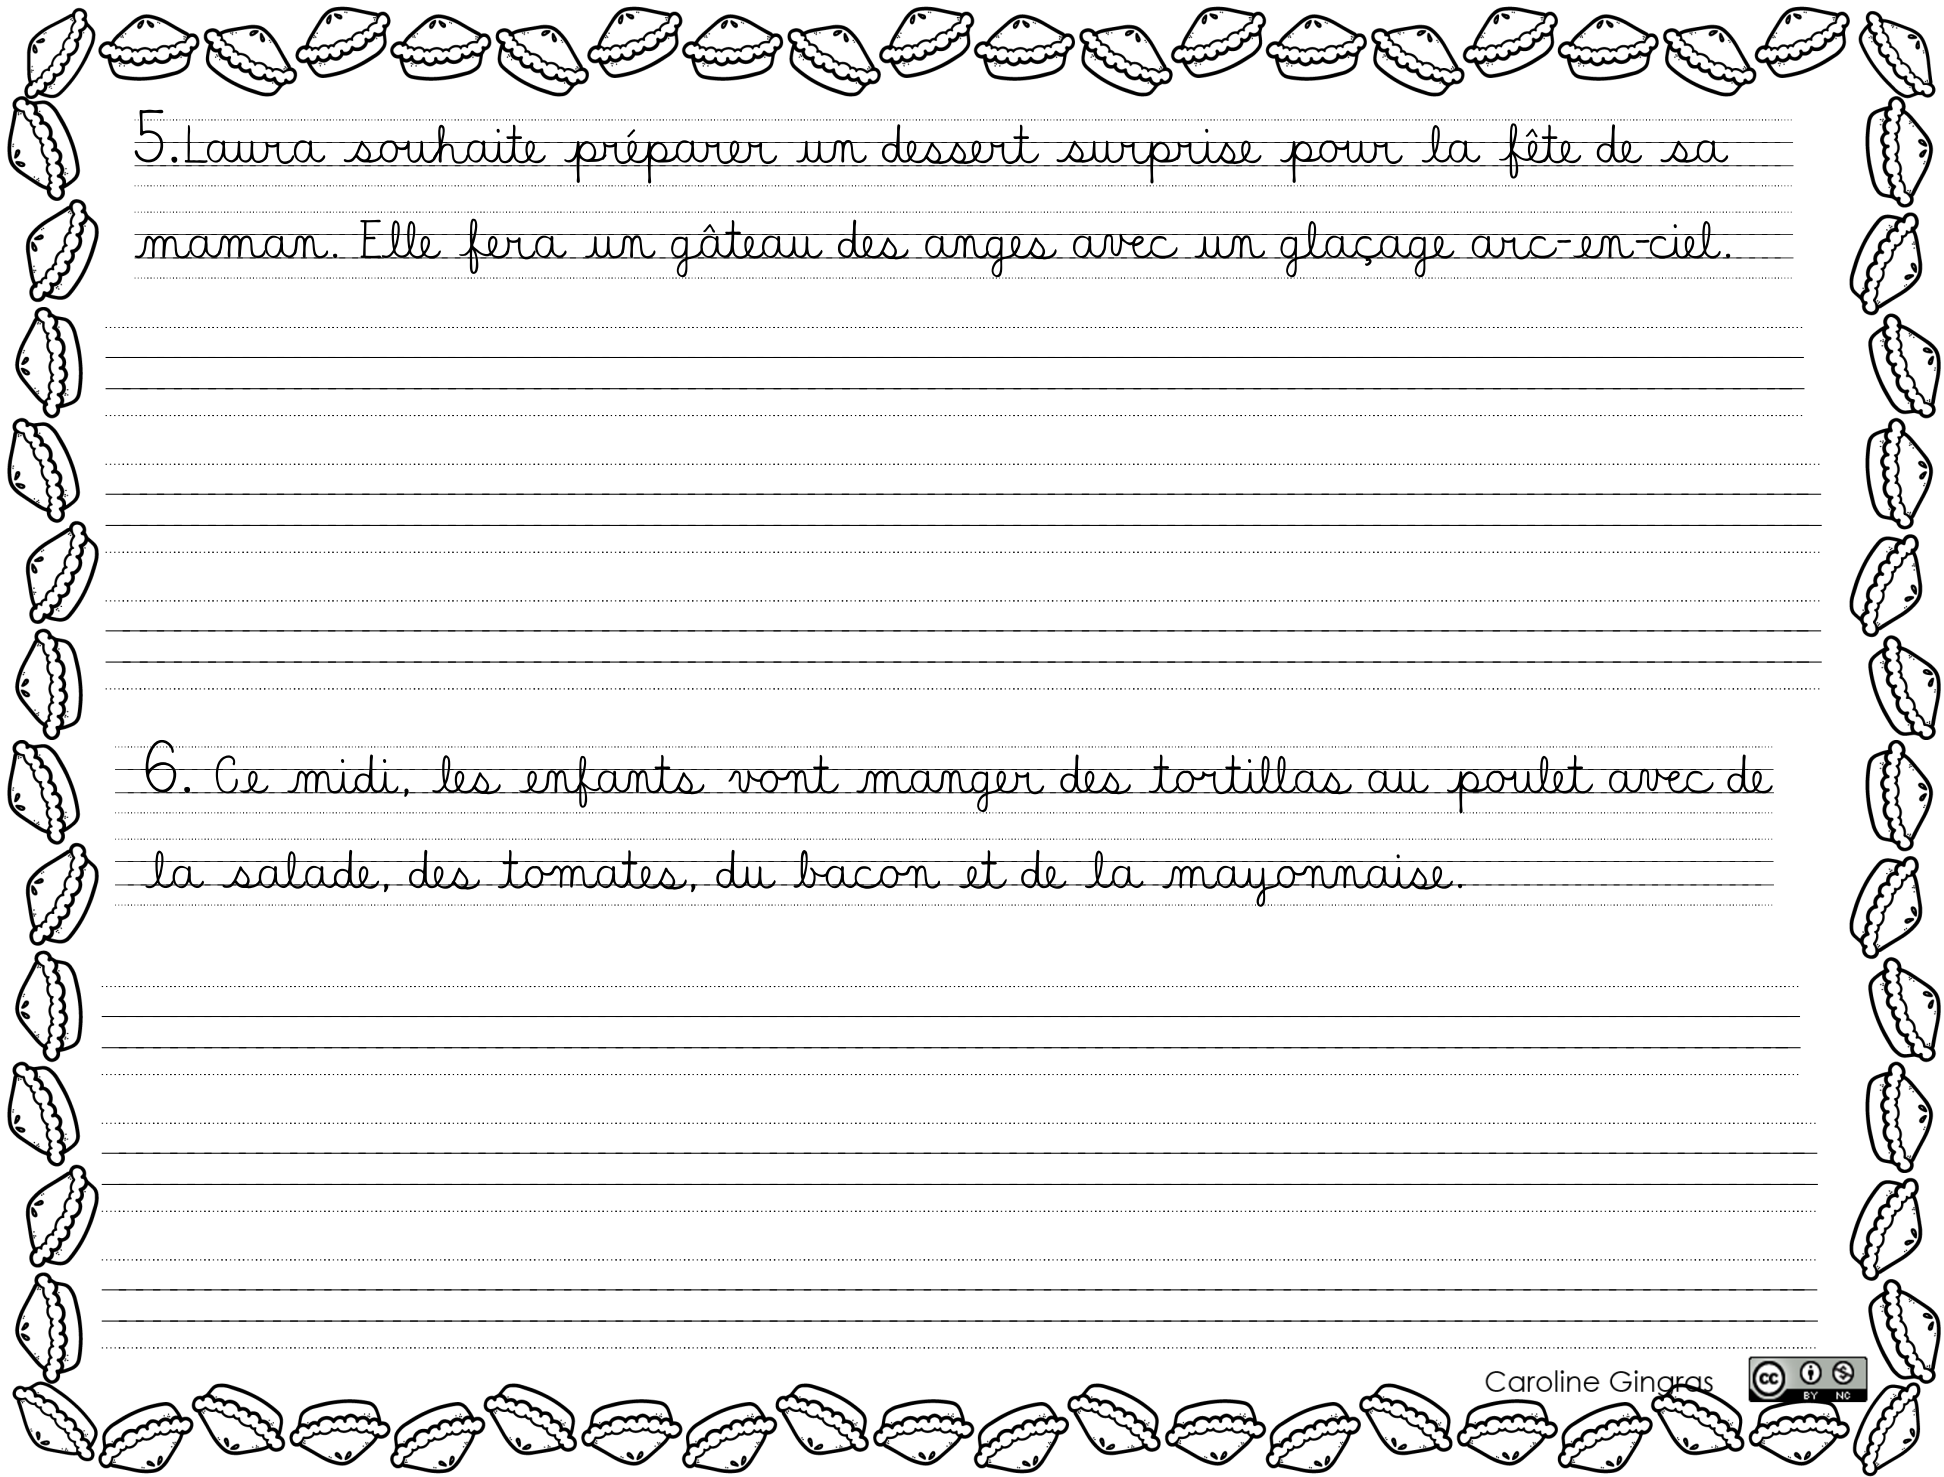 5.Laura souhaite préparer un dessert surprise pour la fête de sa
maman. Elle fera un gâteau des anges avec un glaçage arc-en-ciel.
6. Ce midi, les enfants vont manger des tortillas au poulet avec de
la salade, des tomates, du bacon et de la mayonnaise.
Caroline Gingras
cc BY NC